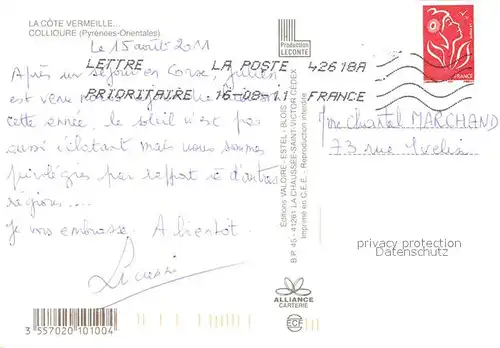 LA CÔTE VERMEILLE...
COLLIOURE (Pyrénées-Orientales)
Le 15 août 2011
Production
LECONTE
LETTRE LA POSTE 42618A
PRIORITAIRE 16-08-11 FRANCE
Après un séjour en Corse, Julien
est venu nous
cette année. Le soleil n'est pas
aussi éclatant mais nous sommes
privilégiés par rapport à d'autres
régions....
Je vous embrasse. A bientôt.
Mme Chantal MARCHAND
73 rue Yvelin
Editions VALOIRE - ESTEL - BLOIS
B.P. 45 - 41261 LA CHAUSSEE-SAINT-VICTOR CEDEX
Imprimé en C.E.E. - Reproduction interdite
privacy protection
Datenschutz
ALLIANCE
CARTERIE
3 557020 101004
FRANCE